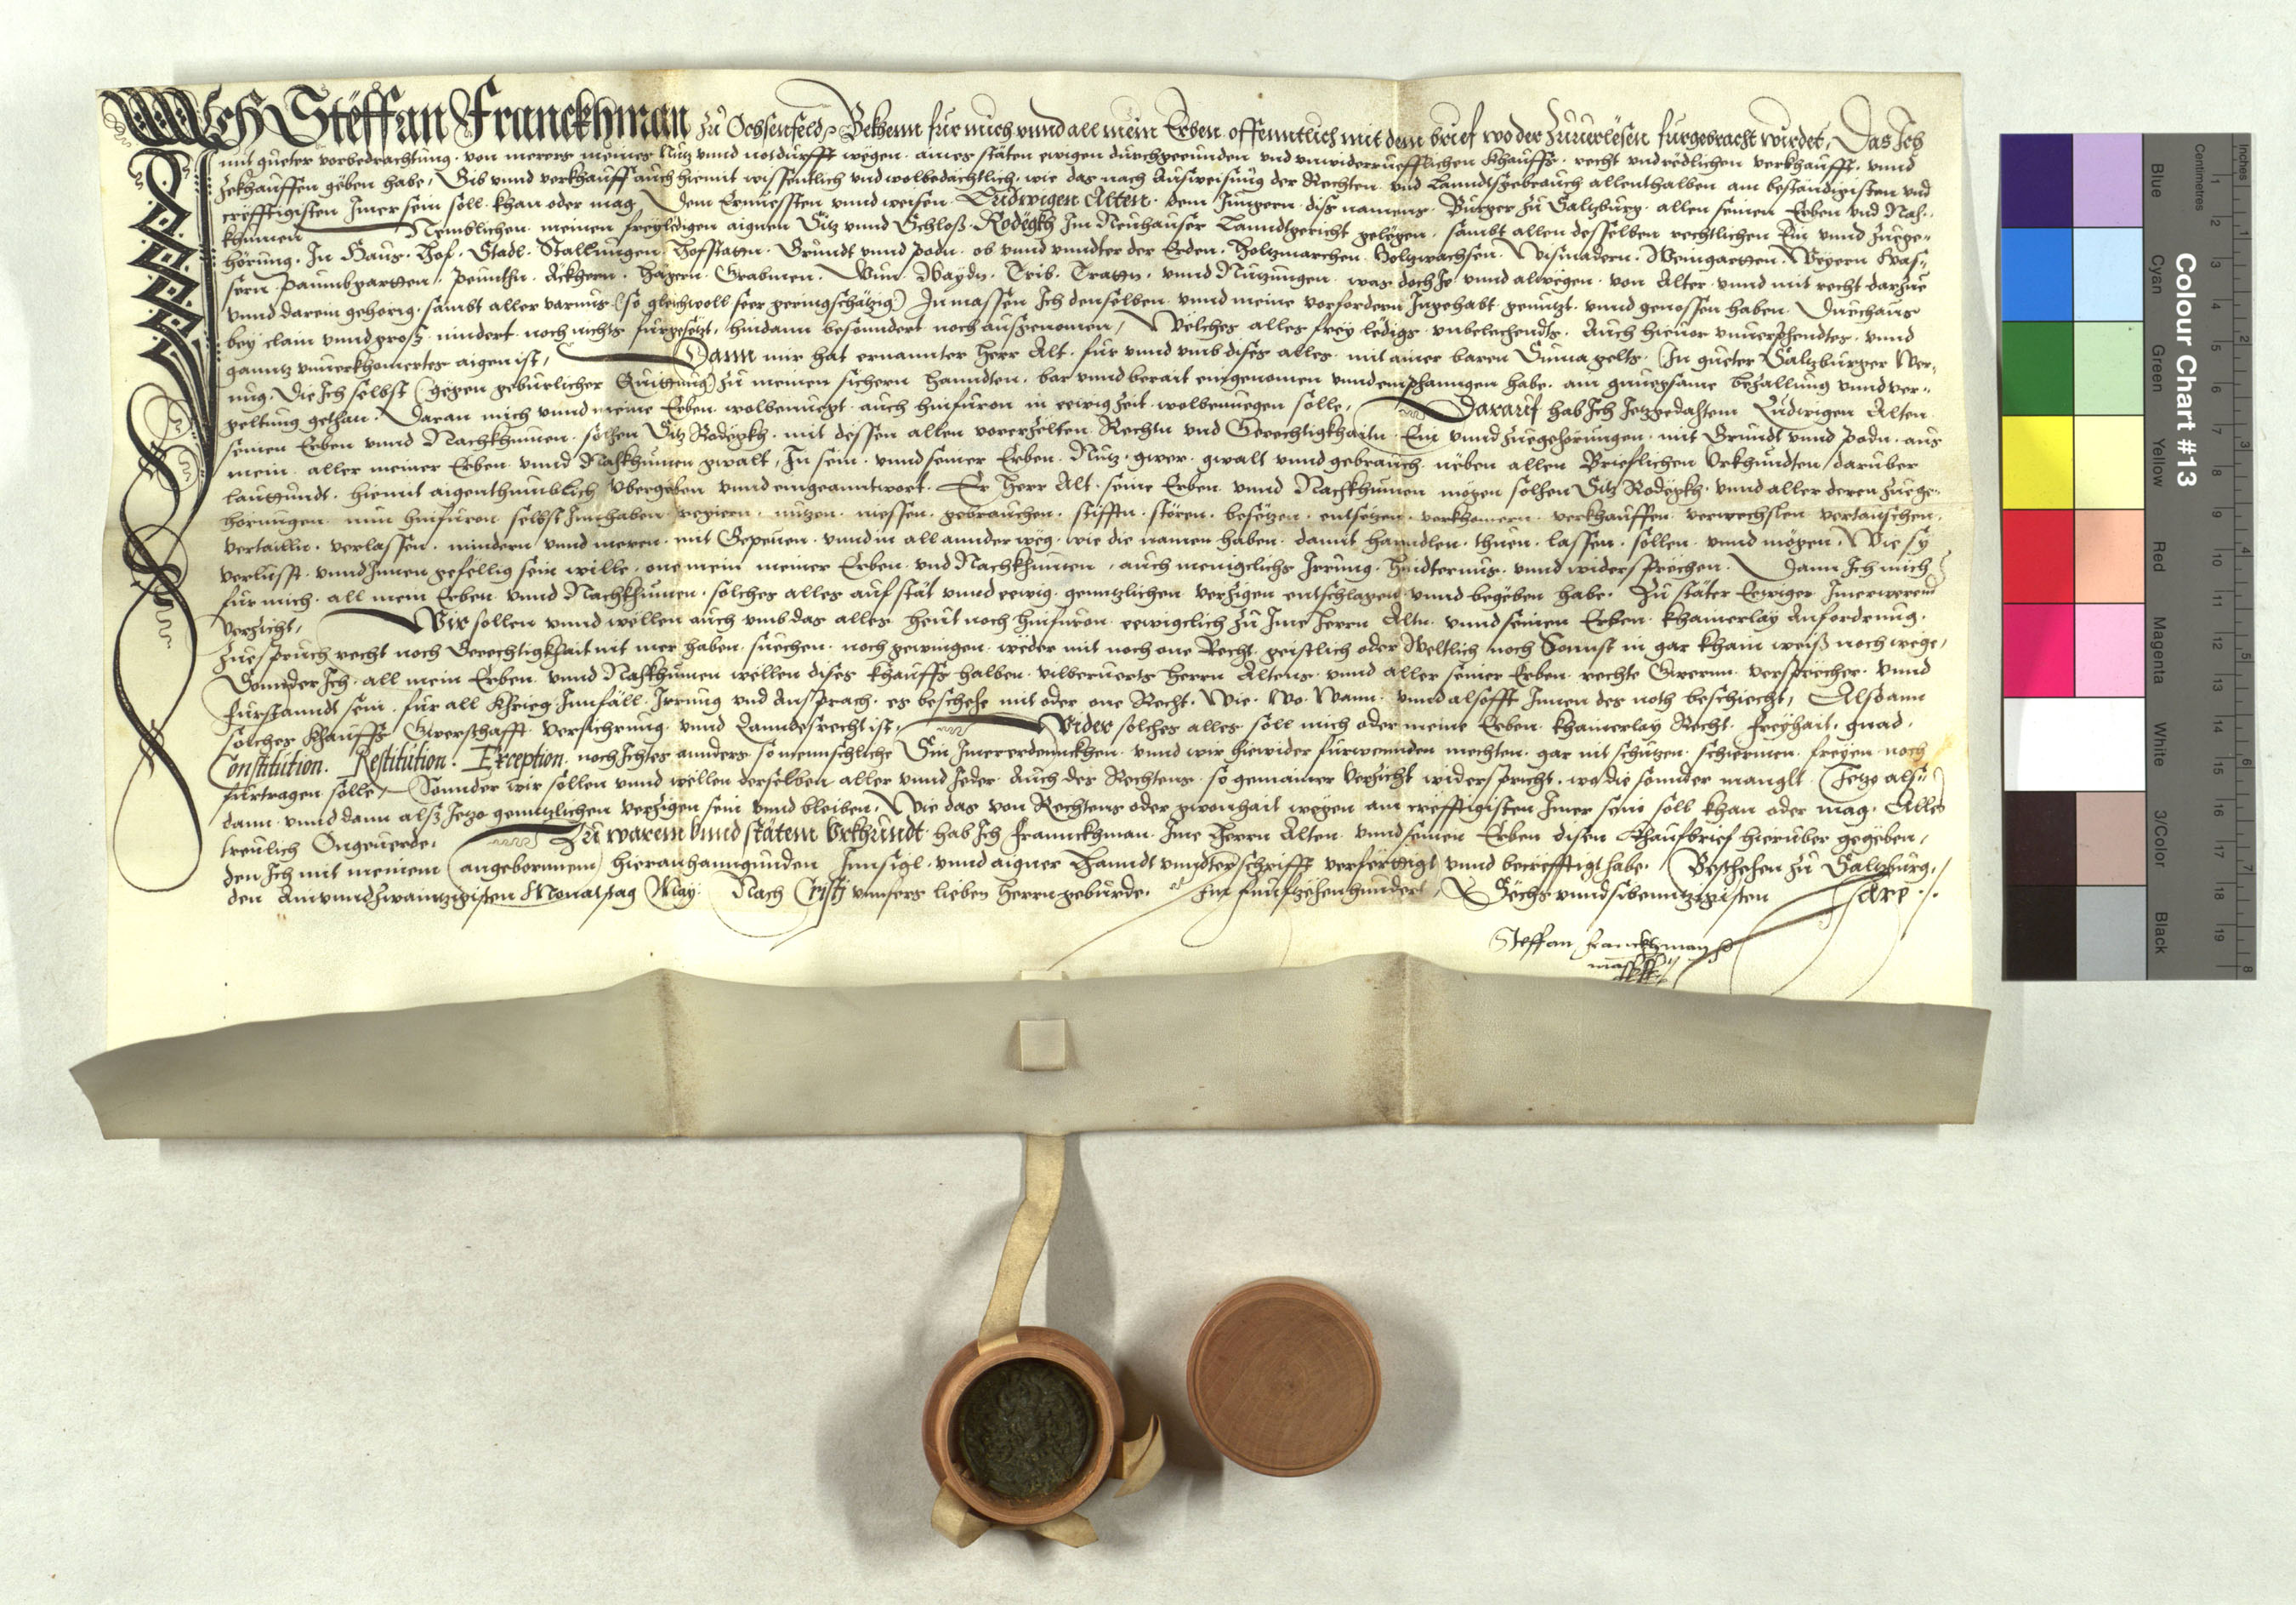 Ich Steffan Franckhman zu Ochsenfeld, Bekhenn fur mich vnnd all mein Erben offenntlich mit dem brief wo der zuuerlesen furgebracht wirdet, Das Ich
mit gueter vorbedrachtung, von merers meines Nuz vnnd notdurfft wegen, aines stäten ewigen durchgeennden vnd vnwiderruefflichen Khauffs, recht vnd redlichen verkhaufft, vnnd
zekhauffen geben habe, Gib vnnd verkhauff auch hiemit wissentlich vnd wolbedächtlich, wie das nach Ausweisung der Rechten vnd Lanndtsgebrauch allenthalben am bestänndigisten vnd
crefftigisten Jmer sein soll khan oder mag, Dem Ernuessten vnnd weisen Ludwigen Alten dem Jungern diß namens, Burger zu Saltzburg, allen seinen Erben vnd Nach-
khumen Nemblichen meinen freyledigen aignen Siz vnnd Schloß Rodegkh Im Neuhauser Lanndtgericht gelegen, sambt allen desselben rechtlichen Ein vnnd Zuege-
hörung, In Haus, Hof, Stadl, Stallungen, Hofstattn, Grundt vnnd podn, ob vnnd vnndter der Erden, Holtzmarchen, Holzwachsen, Wismadern, Weingartten, Weyern, Was-
sern, Paumbgartten, Peunthn, Äckhern, Hägern, Grabmen, Wun, Waydn, Trib, Trattn, vnnd Nutzungen, was doch Je vnnd alwegen von Alter vnnd mit recht darzue
vnnd darein gehörig, sambt aller varnus (so gleichwoll seer geringschätzig) Inmassen Ich denselben vnnd meine vorfordern Ingehabt genutzt vnnd genossen haben, Durchaus
bey clain vnnd groß, nindert noch nichts furgesetzt, hindann besonndert noch ausgenomen, Welches alles frey ledigs vnbelechendts, Auch hieuor vnuerphendtes vnnd
ganntz vnuerkhomertes aigen ist, Dann mir hat ernannter Herr Alt fur vnnd vmb dises alles mit ainer baren Suma gelts (In gueter Saltzburger Wer-
ung, Die Ich selbst (gegen geburlicher Quittung) zu meinen sichern Hanndten, bar vnnd berait eingenomen vnnd emphanngen habe, am genuegsame bezallung vnnd ver-
geltung gethan, Daran mich vnnd meine Erben wolbenuegt, auch hinfuron in eewig Zeit wolbenuegen solle, Darauf hab Ich Jetzgedachtem Ludwigen Alten
seinen Erben vnnd Nachkhumen solhen Siz Rodegkh, mit dessen allen vorerzelten Rechtn vnd Gerechtigkhaitn, Ein vnnd Zuegehörungen, mit Grundt vnnd podn, aus
mein, aller meiner Erben vnnd Nachkhumen gwalt, In sein vnnd seiner Erben Nuz, gwer, gwalt vnnd gebrauch, neben allen Brieflichen Vrkhundten darüber
lauttundt, hiemit aigenthumblich Vbergeben vnnd eingeanntwort. Er Herr Alt, seine Erben vnnd Nachkhumen mögen solhen Siz Rodegkh vnnd aller deren Zuege-
hörungen nun hinfuron selbst Innhaben, regiern, nutzen, niessen, gebrauchen, stifften, stören, besetzen, entsetzen, verkhomern, verkhauffen, verwechslen, vertauschen,
vertailln, verlassen, mindern vnnd meren, mit Gepeuen vnnd in all annder weg, wie die namen haben, damit hanndlen, thuen, lassen, sollen vnnd mögen, Wie sy
verlusst vnnd Jnnen gefellig sein wille, one mein meiner Erben vnd Nachkhumen, auch menigclichs Irrung, Hindternus vnnd widersprechen. Dann Ich mich
fur mich, all mein Erben vnnd Nachkhumen solches alles auf stät vnnd eewig genntzlichen verzigen entschlagen vnnd begeben habe. Zu stäter Eewiger Jmerwerend
verzicht, Wir sollen vnnd wellen auch vmb das alles heut noch hinfuron eewigclich zu Ime Herrn Altn vnnd seinen Erben khainerlay Anfordrung,
Zuespruch recht noch Gerechtigkhait nit mer haben, suechen, noch gewingen, weder mit noch one Recht, geistlich oder Weltlich noch Sonnst in gar khain weiß noch wege,
Sonnder Ich, all mein Erben vnnd Nachkhumen wellen dises khauffs halben vilberuerts Herrn Altens vnnd aller seiner Erben rechte Gwerrn, versprecher vnnd
furstanndt sein, fur all Khrieg, Innfäll, Irrung vnd Ansprach, es beschehe mit oder one Recht, Wie, Wo, Wann, vnnd alsofft Innen des noth beschiecht, Alsdann
solches Khauffs, Gwerschafft, versichrung vnnd Lanndesrecht ist, Wider solches alles soll mich oder meine Erben khainerlay Recht, Freyhait, gnad,
Constitution, Restitution, Exception, noch Ichtes annders so mennschliche Sin Jmer erdennckhen vnnd wir hiewider furwennden mechten, gar nit schutzen, schiermen, freyen noch
furtragen solle, Sonnder wir sollen vnnd wellen derselben aller vnnd Jeder, Auch des Rechtens so gemainer Verzicht widerspricht, wo die sonnder manglt (Jetzo alss
dann vnnd dann alß Jetzo genntzlichen verzigen sein vnnd bleiben, Wie das von Rechtens oder gwonhait wegen am crefftigisten Jmer sein soll khan oder mag. Alles
treulich Ongeuerde. Zu warem Vnnd stätem Vrkhundt hab Ich Franckhman Ime Herrn Alten vnnd seinen Erben disen Khaufbrief hieruber gegeben,
den Ich mit meinem (angebornnem) hieranhanngunden Innsigl vnnd aigner Hanndt vnndterschrifft verferttigt vnnd becrefftigt habe. Beschehen zu Saltzburg,
den Ainvnndzwaintzigisten Monatstag May Nach Cristj vnnsers lieben Herrn geburde Im Funfftzehenhundert Sechs vnndsibenntzigisten Jare.
Steffan Franckhman